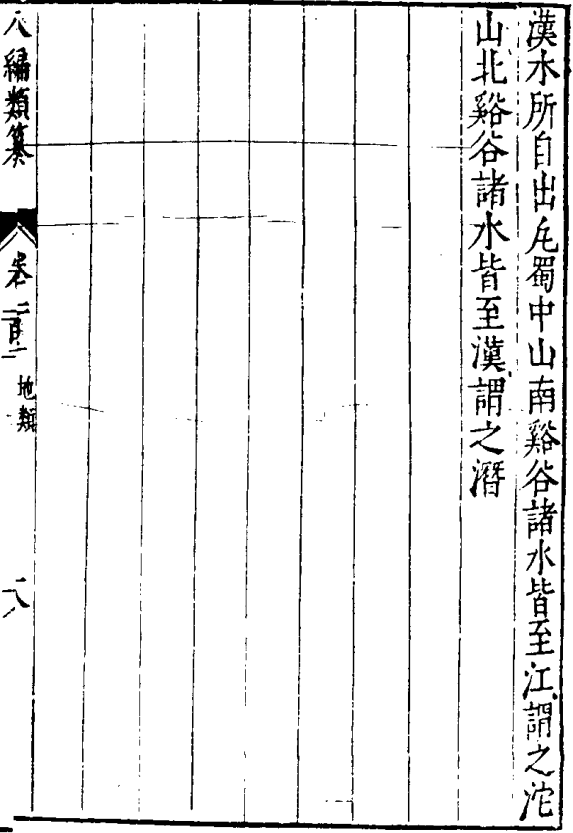 漢水所自出凡蜀中山南谿谷諸水皆至江謂之沱
山北谿谷諸水皆至漢謂之潛
八編類纂
卷二百二
地類